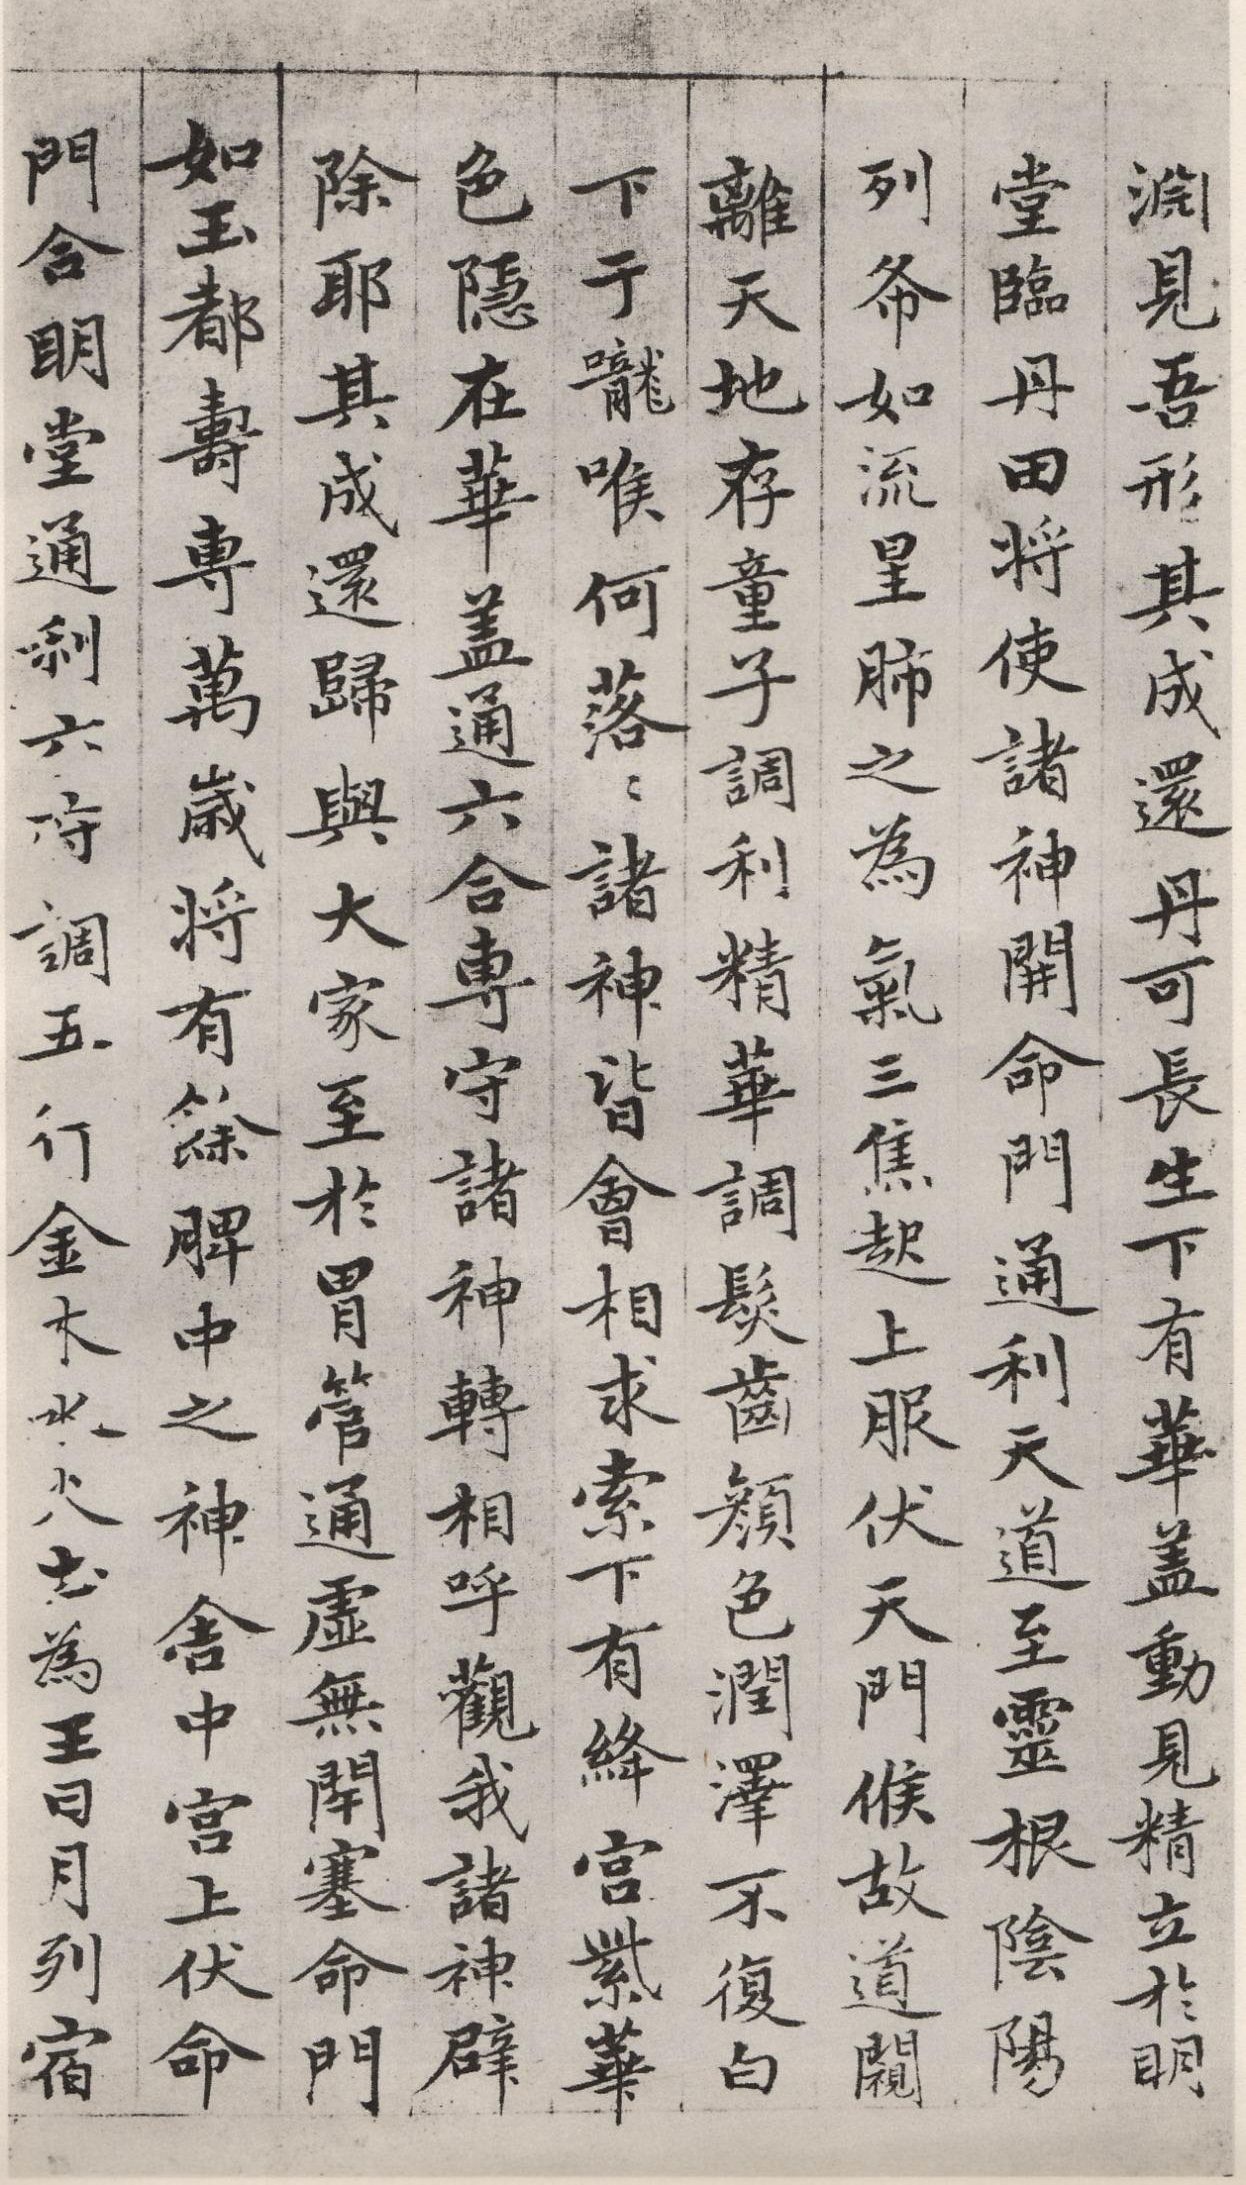 淵見吾形其成還丹可長生下有華盖動見精立於明
堂臨丹田将使諸神開命門通利天道至靈根陰陽
列布如流星肺之為氣三焦起上服伏天門候故道闚
離天地存童子調利精華調髮齒顔色潤澤不復白
下于嚨喉何落〻諸神皆會相求索下有絳宮紫華
色隱在華盖通六合専守諸神轉相呼觀我諸神辟
除耶其成還歸與大家至於胃管通虛無閇塞命門
如玉都壽専萬歲将有餘脾中之神舍中宮上伏命
門合明堂通利六府調五行金木水火土為王日月列宿